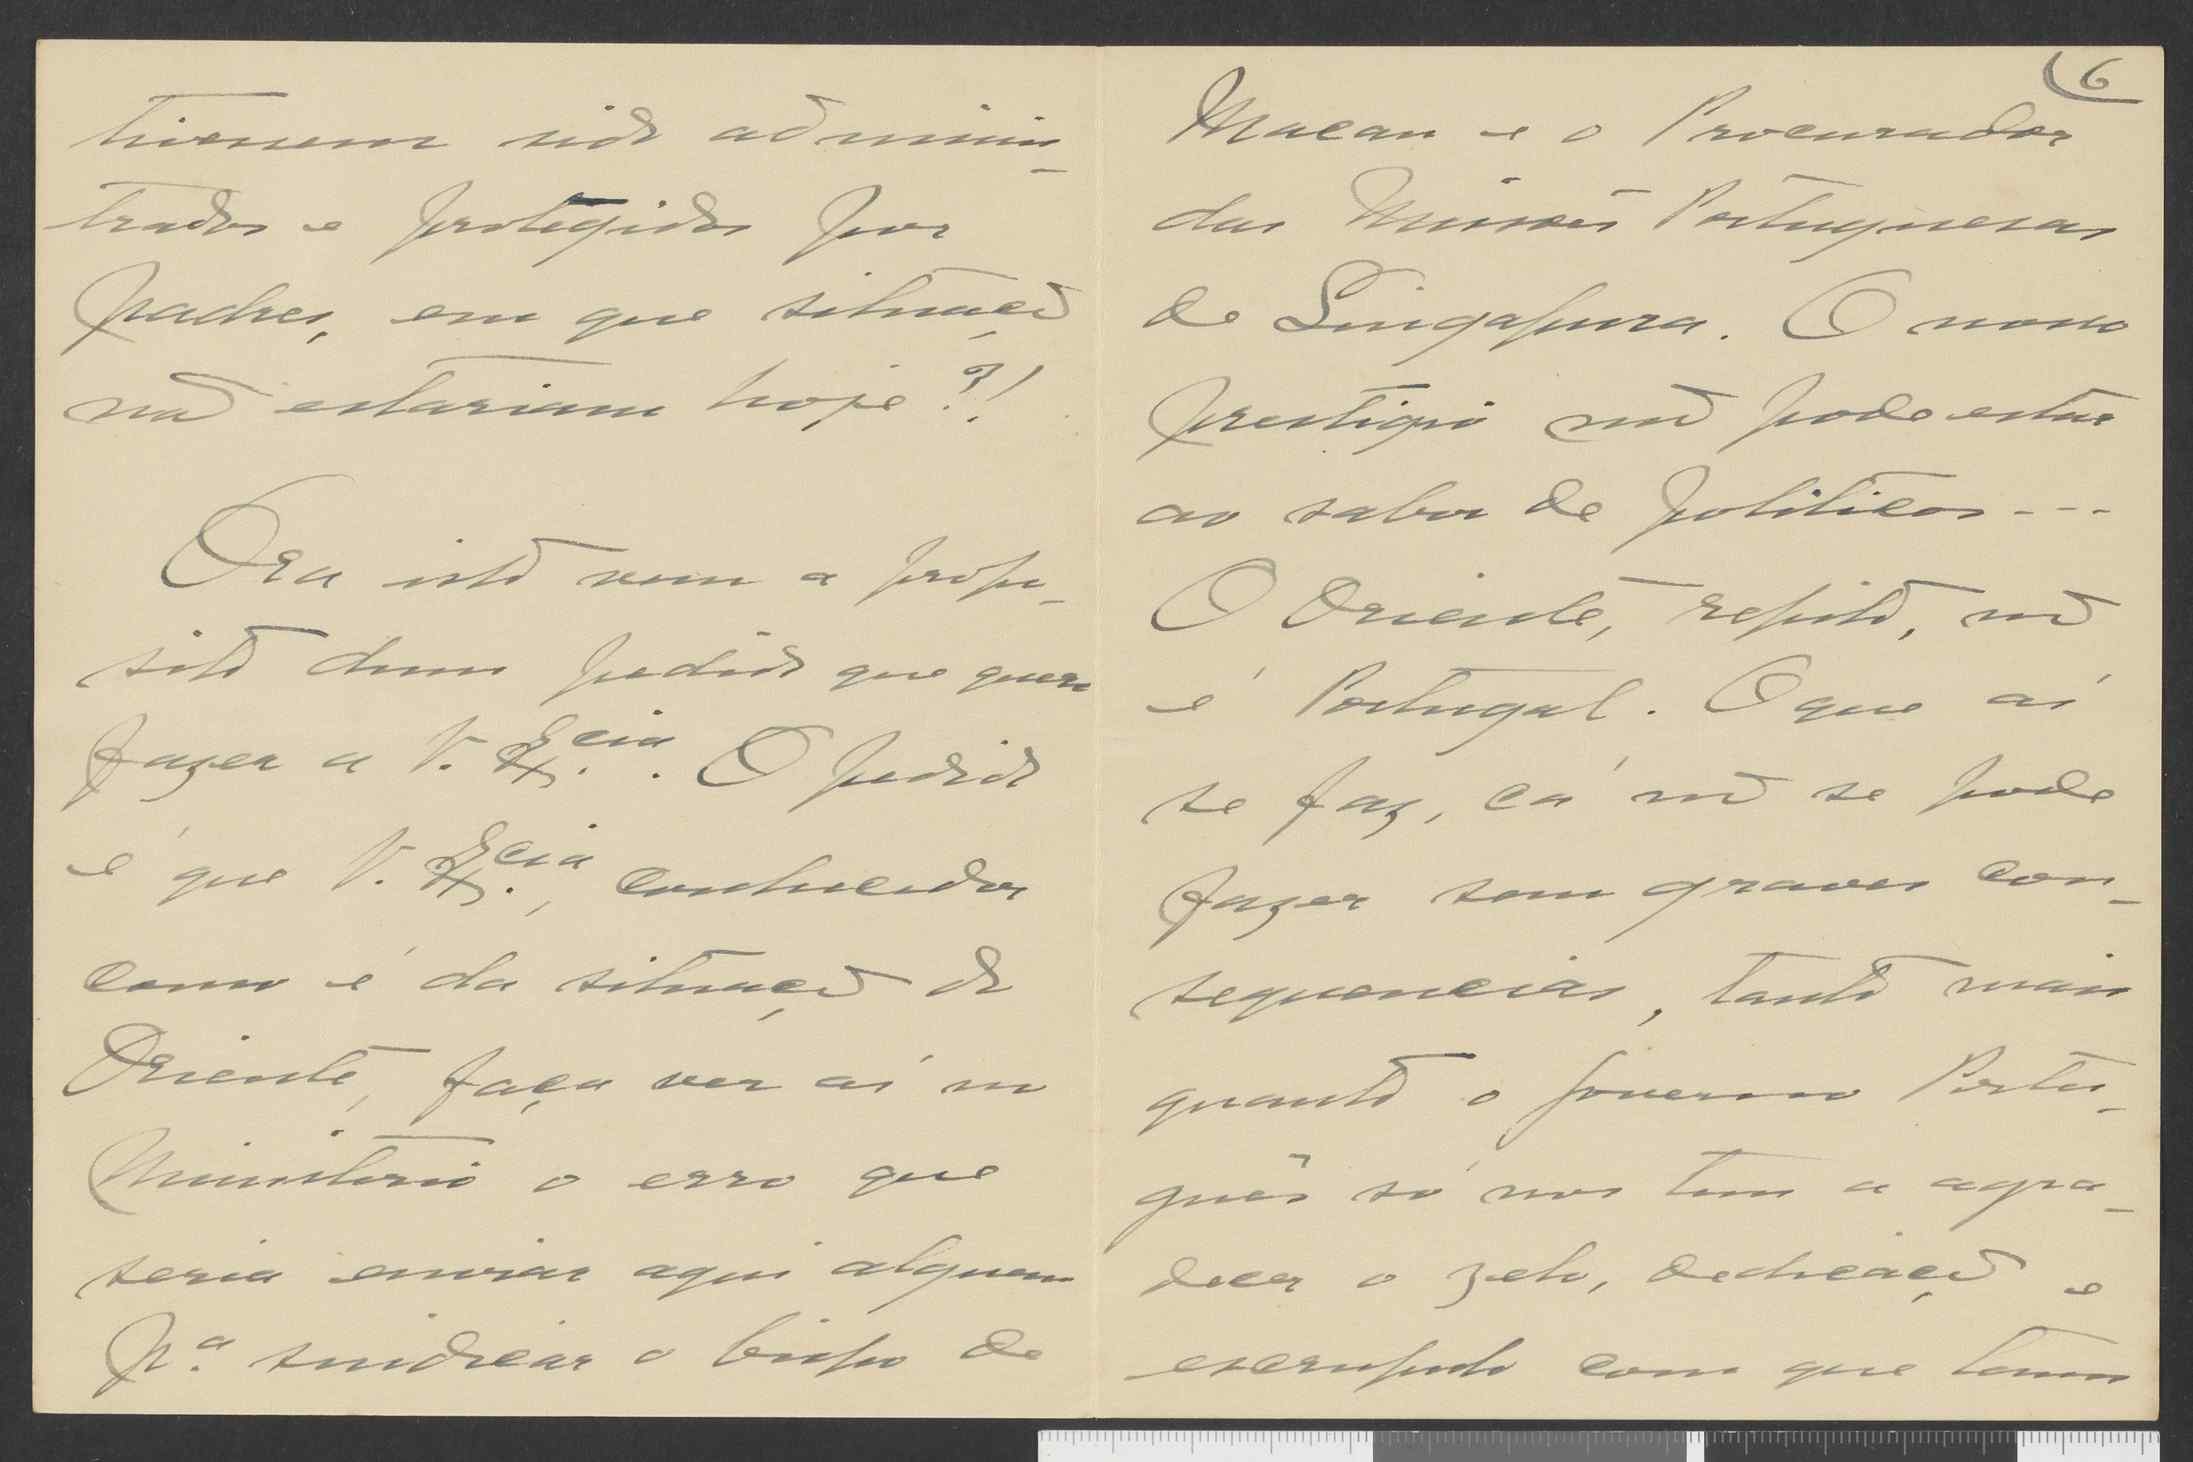 tivessem sido adminis-
trados e protegidos por
padres, em que situação
não estariam hoje?!
Ora isto vem a propo-
sito dum pedido que quero
fazer a V. Ex.cia. O pedido
é que V. Ex.cia, conhecedor
como é da situação do
Oriente, faça ver aí no
Ministerio o erro que
seria enviar aqui alguem
p.a sindicar o bispo de
6
Macau e o Procurador
das Missões Portuguesas
de Singapura. O nosso
prestigio não pode estar
ao sabor de politicos...
O Oriente, repito, não
é Portugal. O que aí
se faz, cá não se pode
fazer sem graves con-
sequencias, tanto mais
quanto o Governo Portu-
guês só nos tem a agra-
decer o zelo, dedicação e
escrupulo com que temos